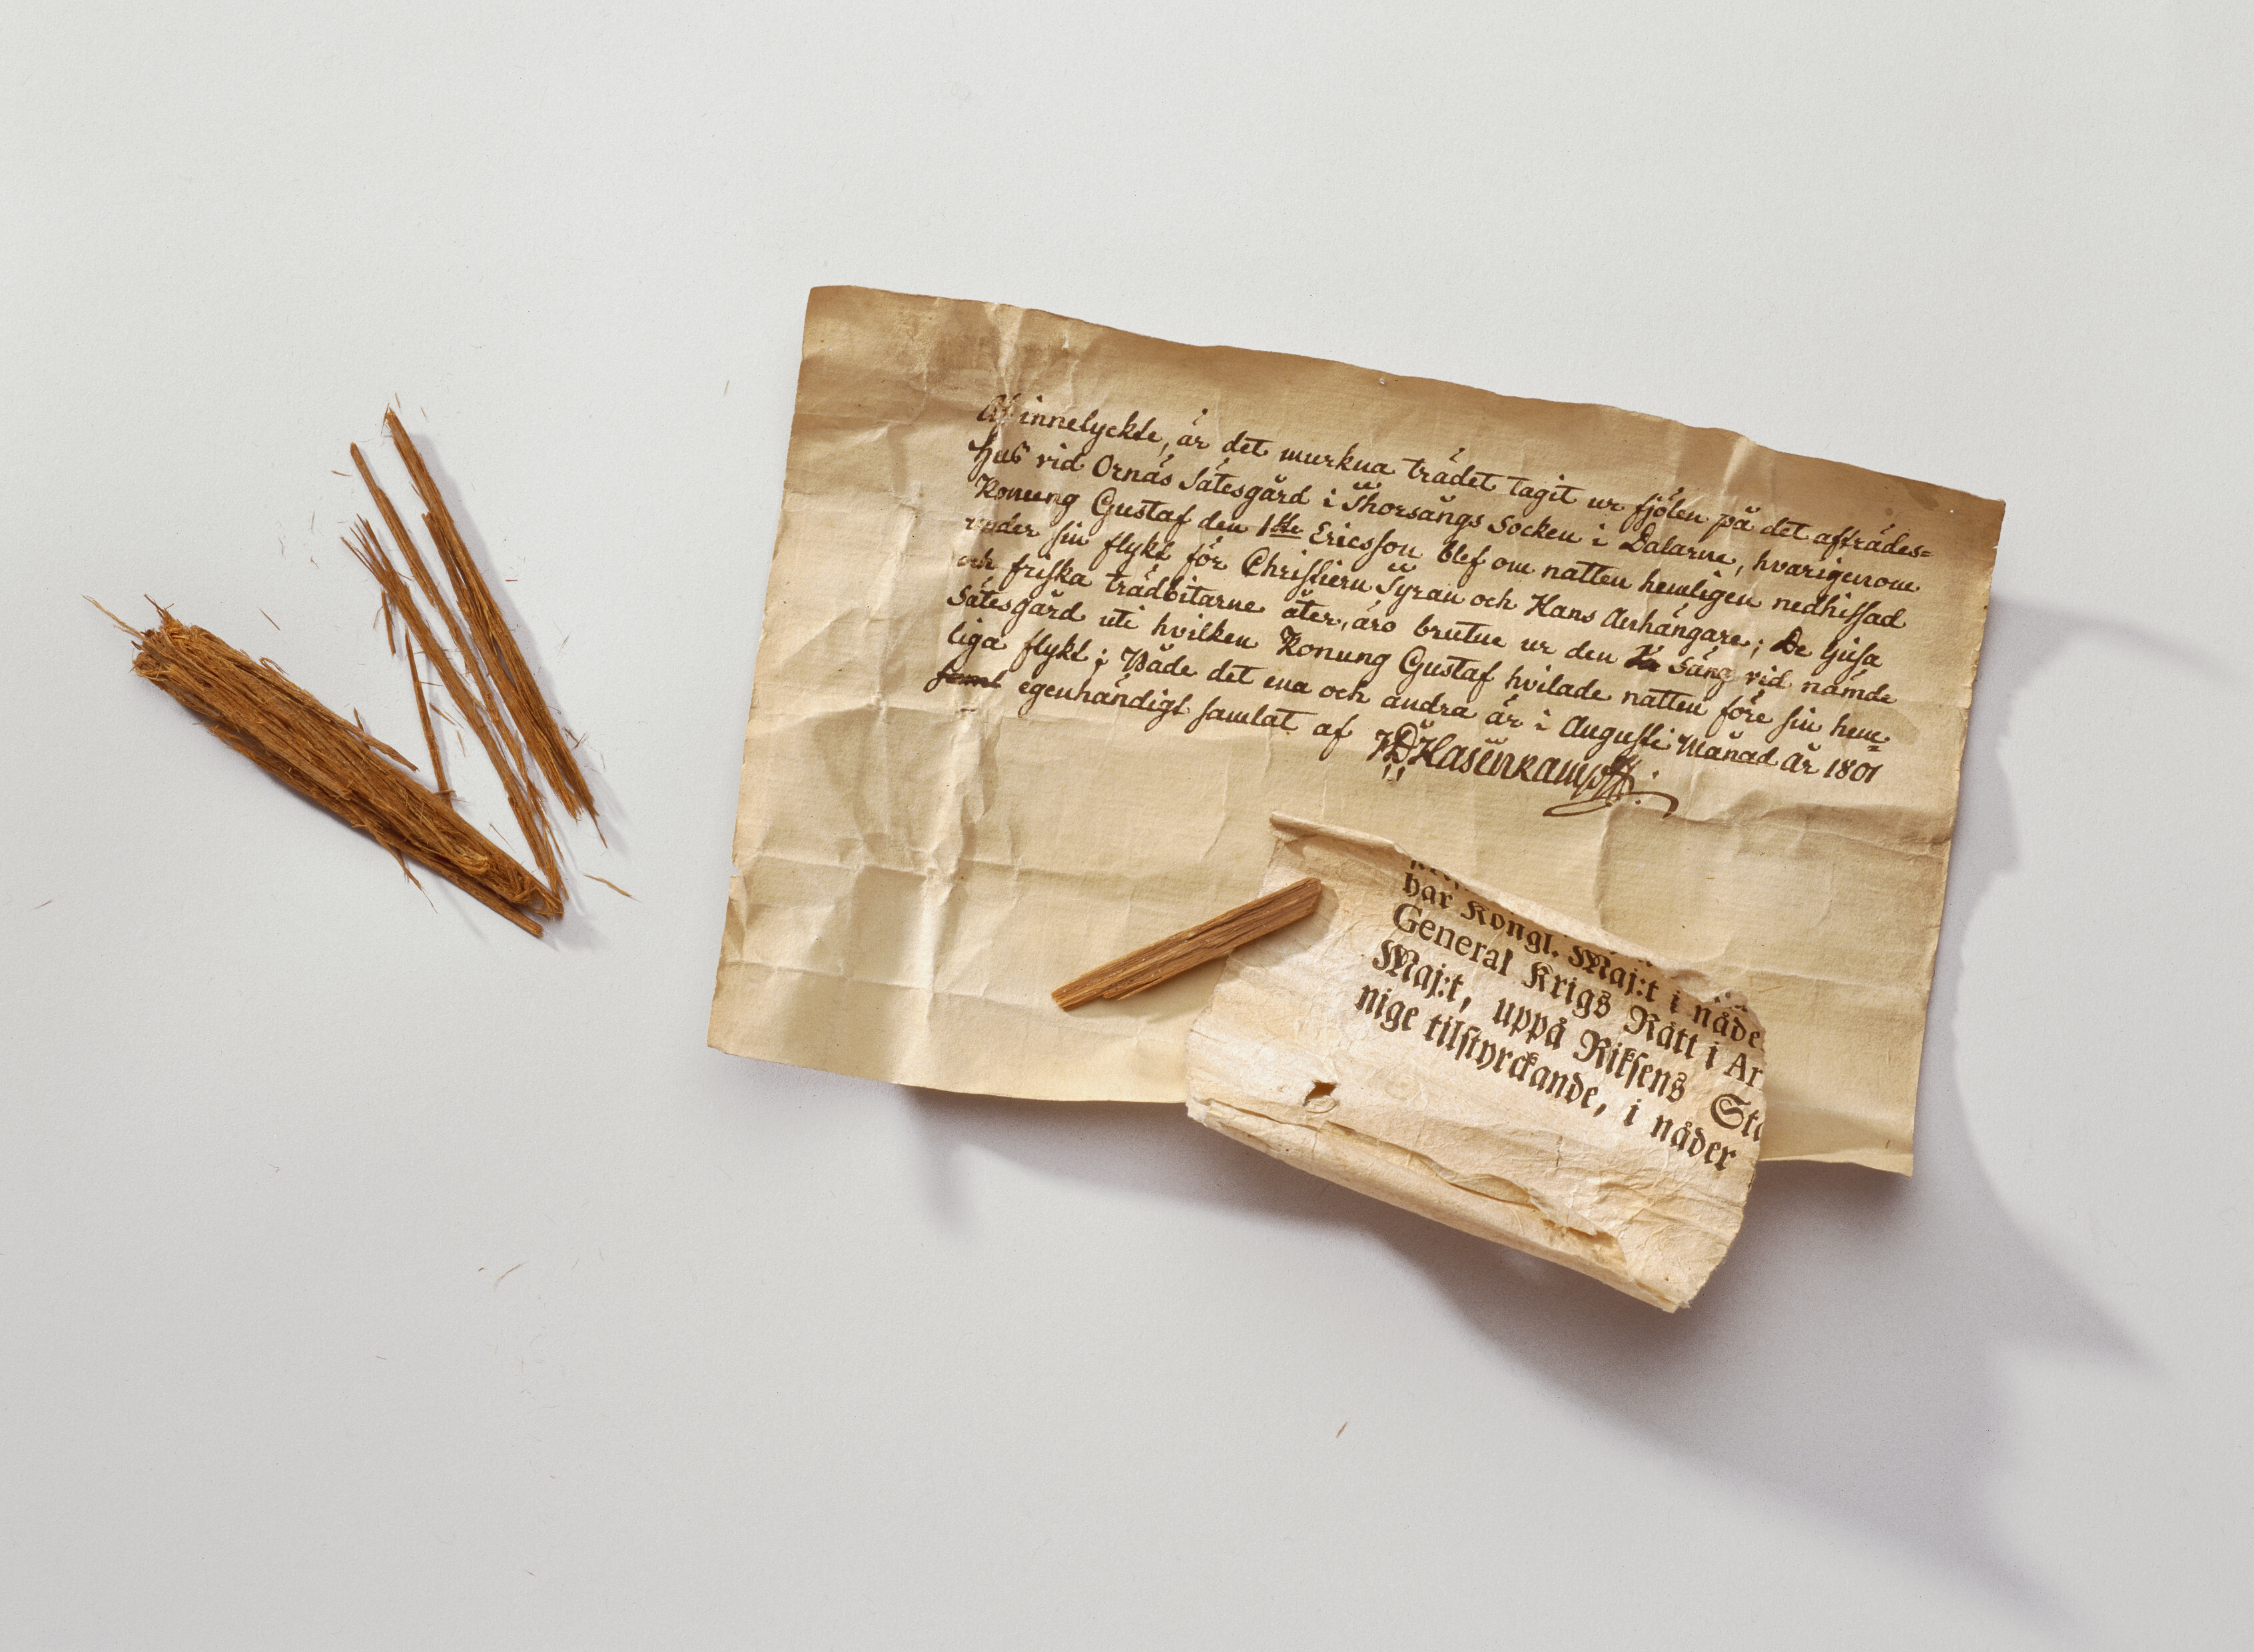 Af innelyckte, är det murkna trädet tagit ur fjölen på det afträdes=
hus vid Ornäs Sätesgård i Thorsångs Socken i Dalarne, hvarigenom
Konung Gustaf den 1ste Ericsson blef om natten hemligen nedhissad
under sin flykt för Christiern Tyran och Hans Anhängare; De ljusa
och friska trädbitarne åter, äro brutne ur den Säng vid nämde
Sätesgård uti hvilken Konung Gustaf hvilade natten före sin hem=
liga flykt; Både det ena och andra är i Augusti Månad år 1801
egenhändigt samlat af HDHasenkampff.
har Kongl. Maj:t i nåde
General Krigs Rätt i Ar
Maj:t, uppå Riksens Stä
nige tilstyrckande, i nåder